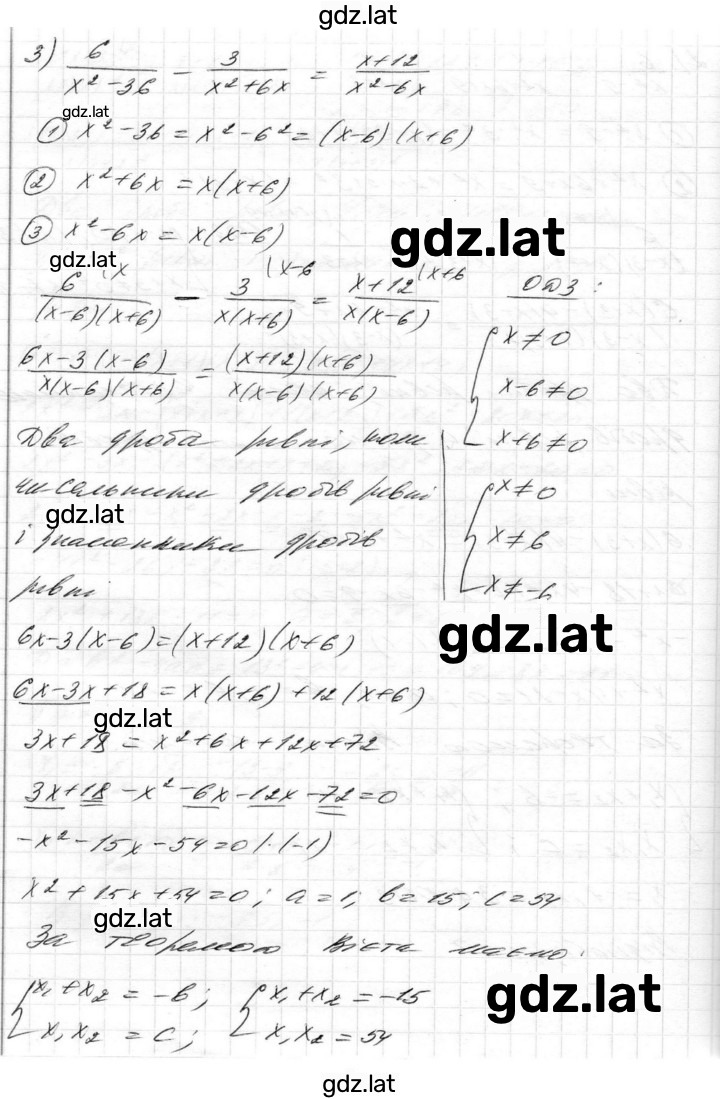 gdz.lat
3) 6/(x² - 36) - 3/(x² + 6x) = (x+12)/(x² - 6x)
gdz.lat
① x² - 36 = x² - 6² = (x-6)(x+6)
② x² + 6x = x(x+6)
③ x² - 6x = x(x-6)
gdz.lat
gdz.lat
6\x/((x-6)(x+6)) - 3\x-6/(x(x+6)) = x+12\x+6/(x(x-6))
ОДЗ:
(6x-3(x-6))/(x(x-6)(x+6)) = ((x+12)(x+6))/(x(x-6)(x+6))
{x ≠ 0
x-6 ≠ 0
x+6 ≠ 0
{x ≠ 0
x ≠ 6
x ≠ -6
Два дроба рівні, коли
чисельники дробів рівні
gdz.lat
і знаменники дробів
рівні
gdz.lat
6x-3(x-6)=(x+12)(x+6)
6x-3x+18 = x(x+6)+12(x+6)
gdz.lat
3x+18 = x²+6x+12x+72
3x+18-x²-6x-12x-72=0
-x²-15x-54=0 |·(-1)
x²+15x+54=0; a=1; b=15; c=54
gdz.lat
За теоремою Вієта маємо:
{x₁+x₂ = -b; {x₁+x₂ = -15
x₁x₂ = c; x₁x₂ = 54
gdz.lat
gdz.lat